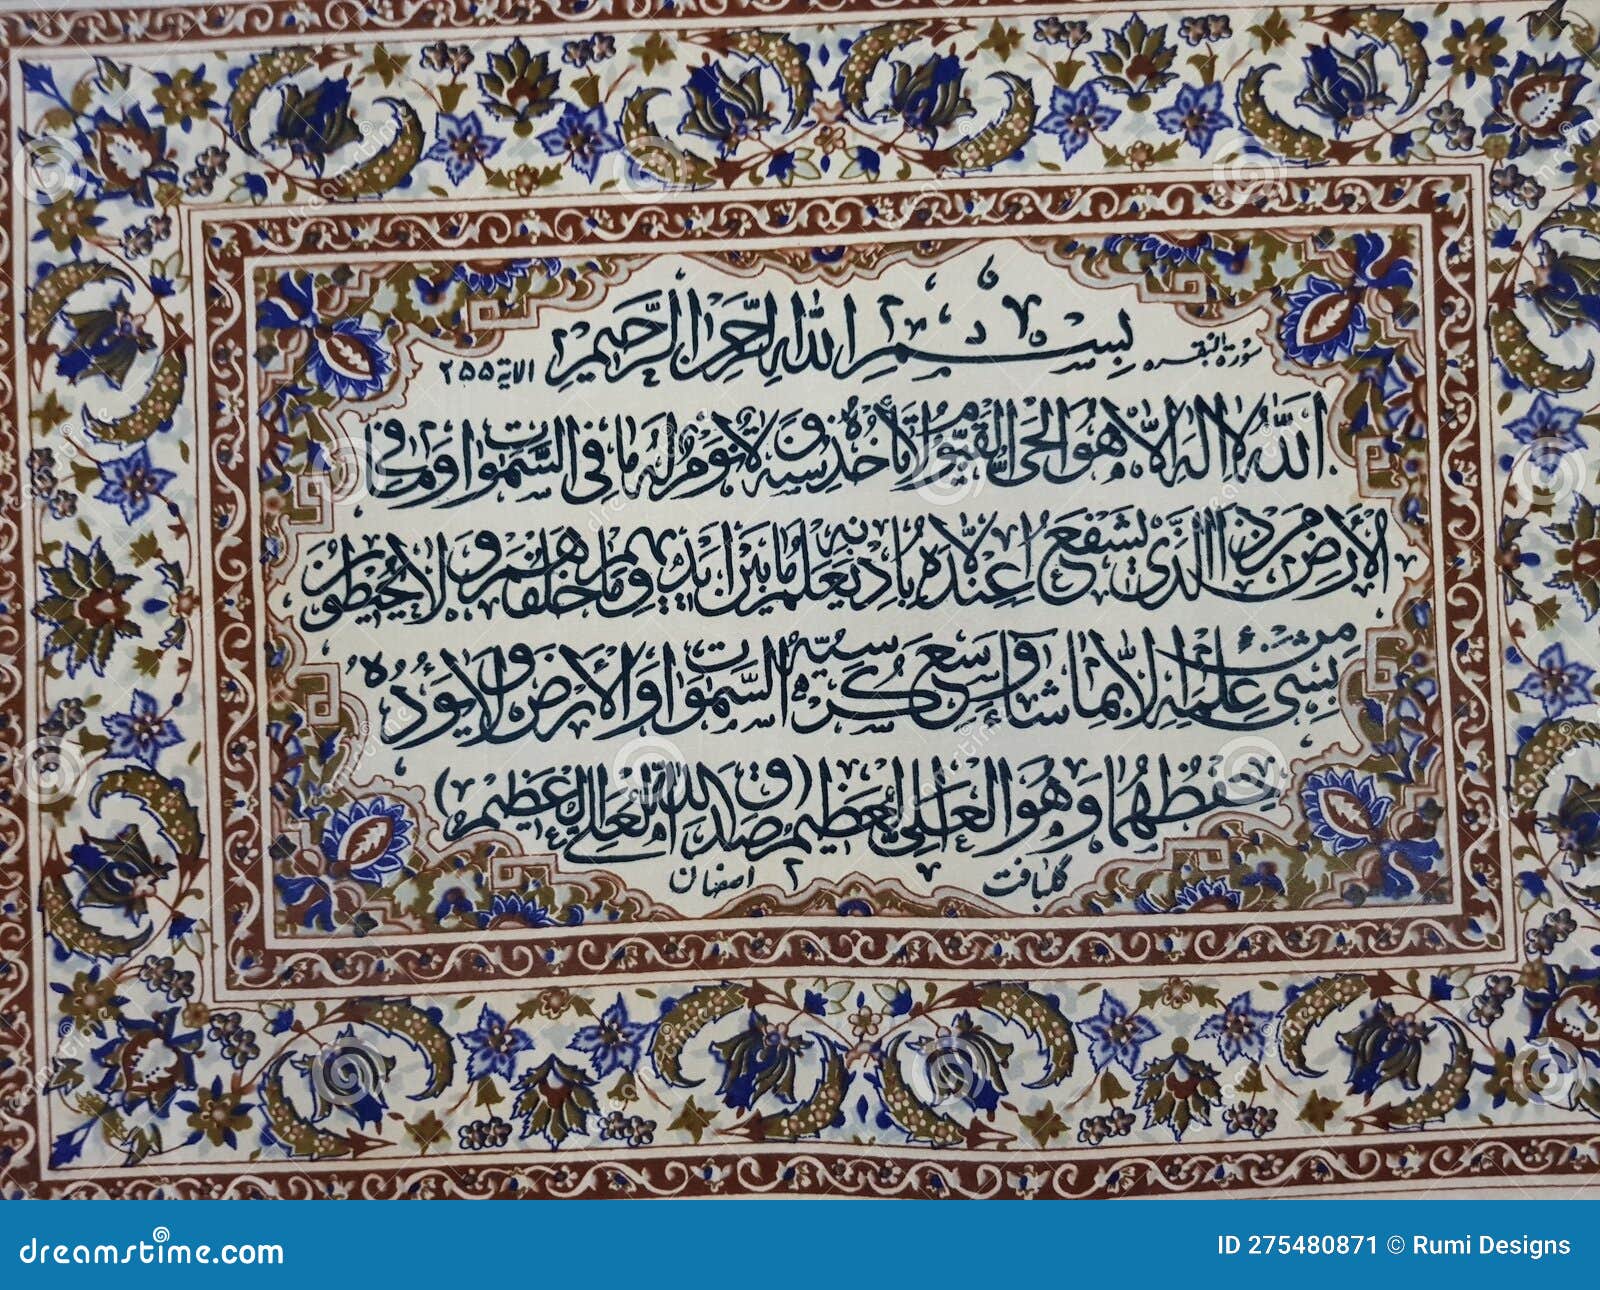 سورة البقره
بسم الله الرحمن الرحيم
الاية ٢٥٥
الله لا اله الا هو الحي القيوم لا تأخذه سنة ولا نوم له ما في السموات وما في
الأرض من ذا الذي يشفع عنده الا باذنه يعلم ما بين ايديهم وما خلفهم ولا يحيطون
بشيء من علمه الا بما شاء وسع كرسيه السموات والأرض ولا يؤده
حفظهما وهو العلي العظيم (صدق الله العلي العظيم)
گلبافت اصفهان
dreamstime.com
ID 275480871 © Rumi Designs